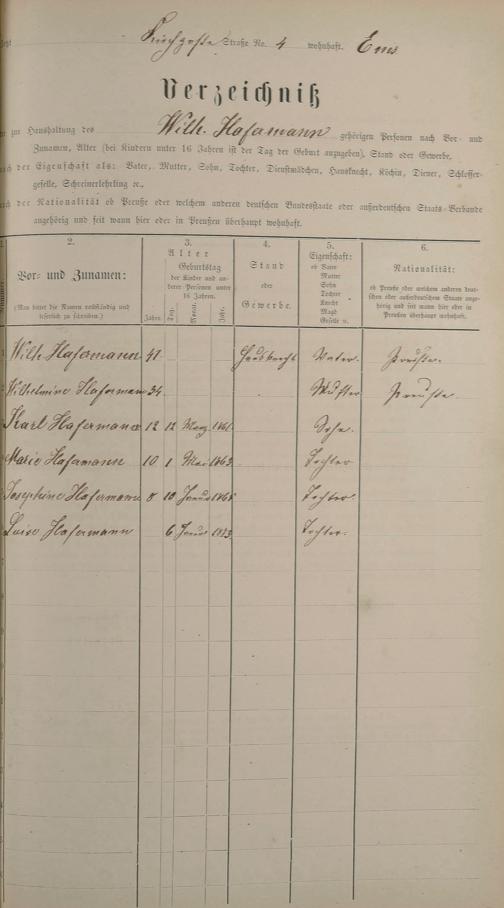 Kirchgasse Straße No. 4 wohnhaft. Ems
Verzeichniß
zur Haushaltung des Wilh. Hafermann gehörigen Personen nach Vor- und
Zunamen, Alter (bei Kindern unter 16 Jahren ist der Tag der Geburt anzugeben), Stand oder Gewerbe,
der Eigenschaft als: Vater, Mutter, Sohn, Tochter, Dienstmädchen, Hausknecht, Köchin, Diener, Schlosser-
geselle, Schreinerlehrling ec.,
der Nationalität ob Preuße oder welchem anderen deutschen Bundesstaate oder außerdeutschen Staats-Verbande
angehörig und seit wann hier oder in Preußen überhaupt wohnhaft.
2.
Vor- und Zunamen:
(Man bittet die Namen vollständig und
leserlich zu schreiben.)
3.
Alter
Geburtstag
der Kinder und an-
derer Personen unter
16 Jahren.
Jahre. Tag. Monat. Jahr.
4.
Stand
oder
Gewerbe.
5.
Eigenschaft:
ob Vater
Mutter
Sohn
Tochter
Knecht
Magd
Geselle u.
6.
Nationalität:
ob Preuße oder welchem anderen deut-
schen oder außerdeutschen Staate ange-
hörig und seit wann hier oder in
Preußen überhaupt wohnhaft.
Wilh. Hafermann 41 Vater. Preuße.
Wilhelmine Hafermann 34 Mutter Preuße
Karl Hafermann 12 12 März 1861 Sohn.
Marie Hafermann 10 1 Mai 1863 Tochter
Josephine Hafermann 8 10 Tochter.
Luise Hafermann 6 1873 Tochter.